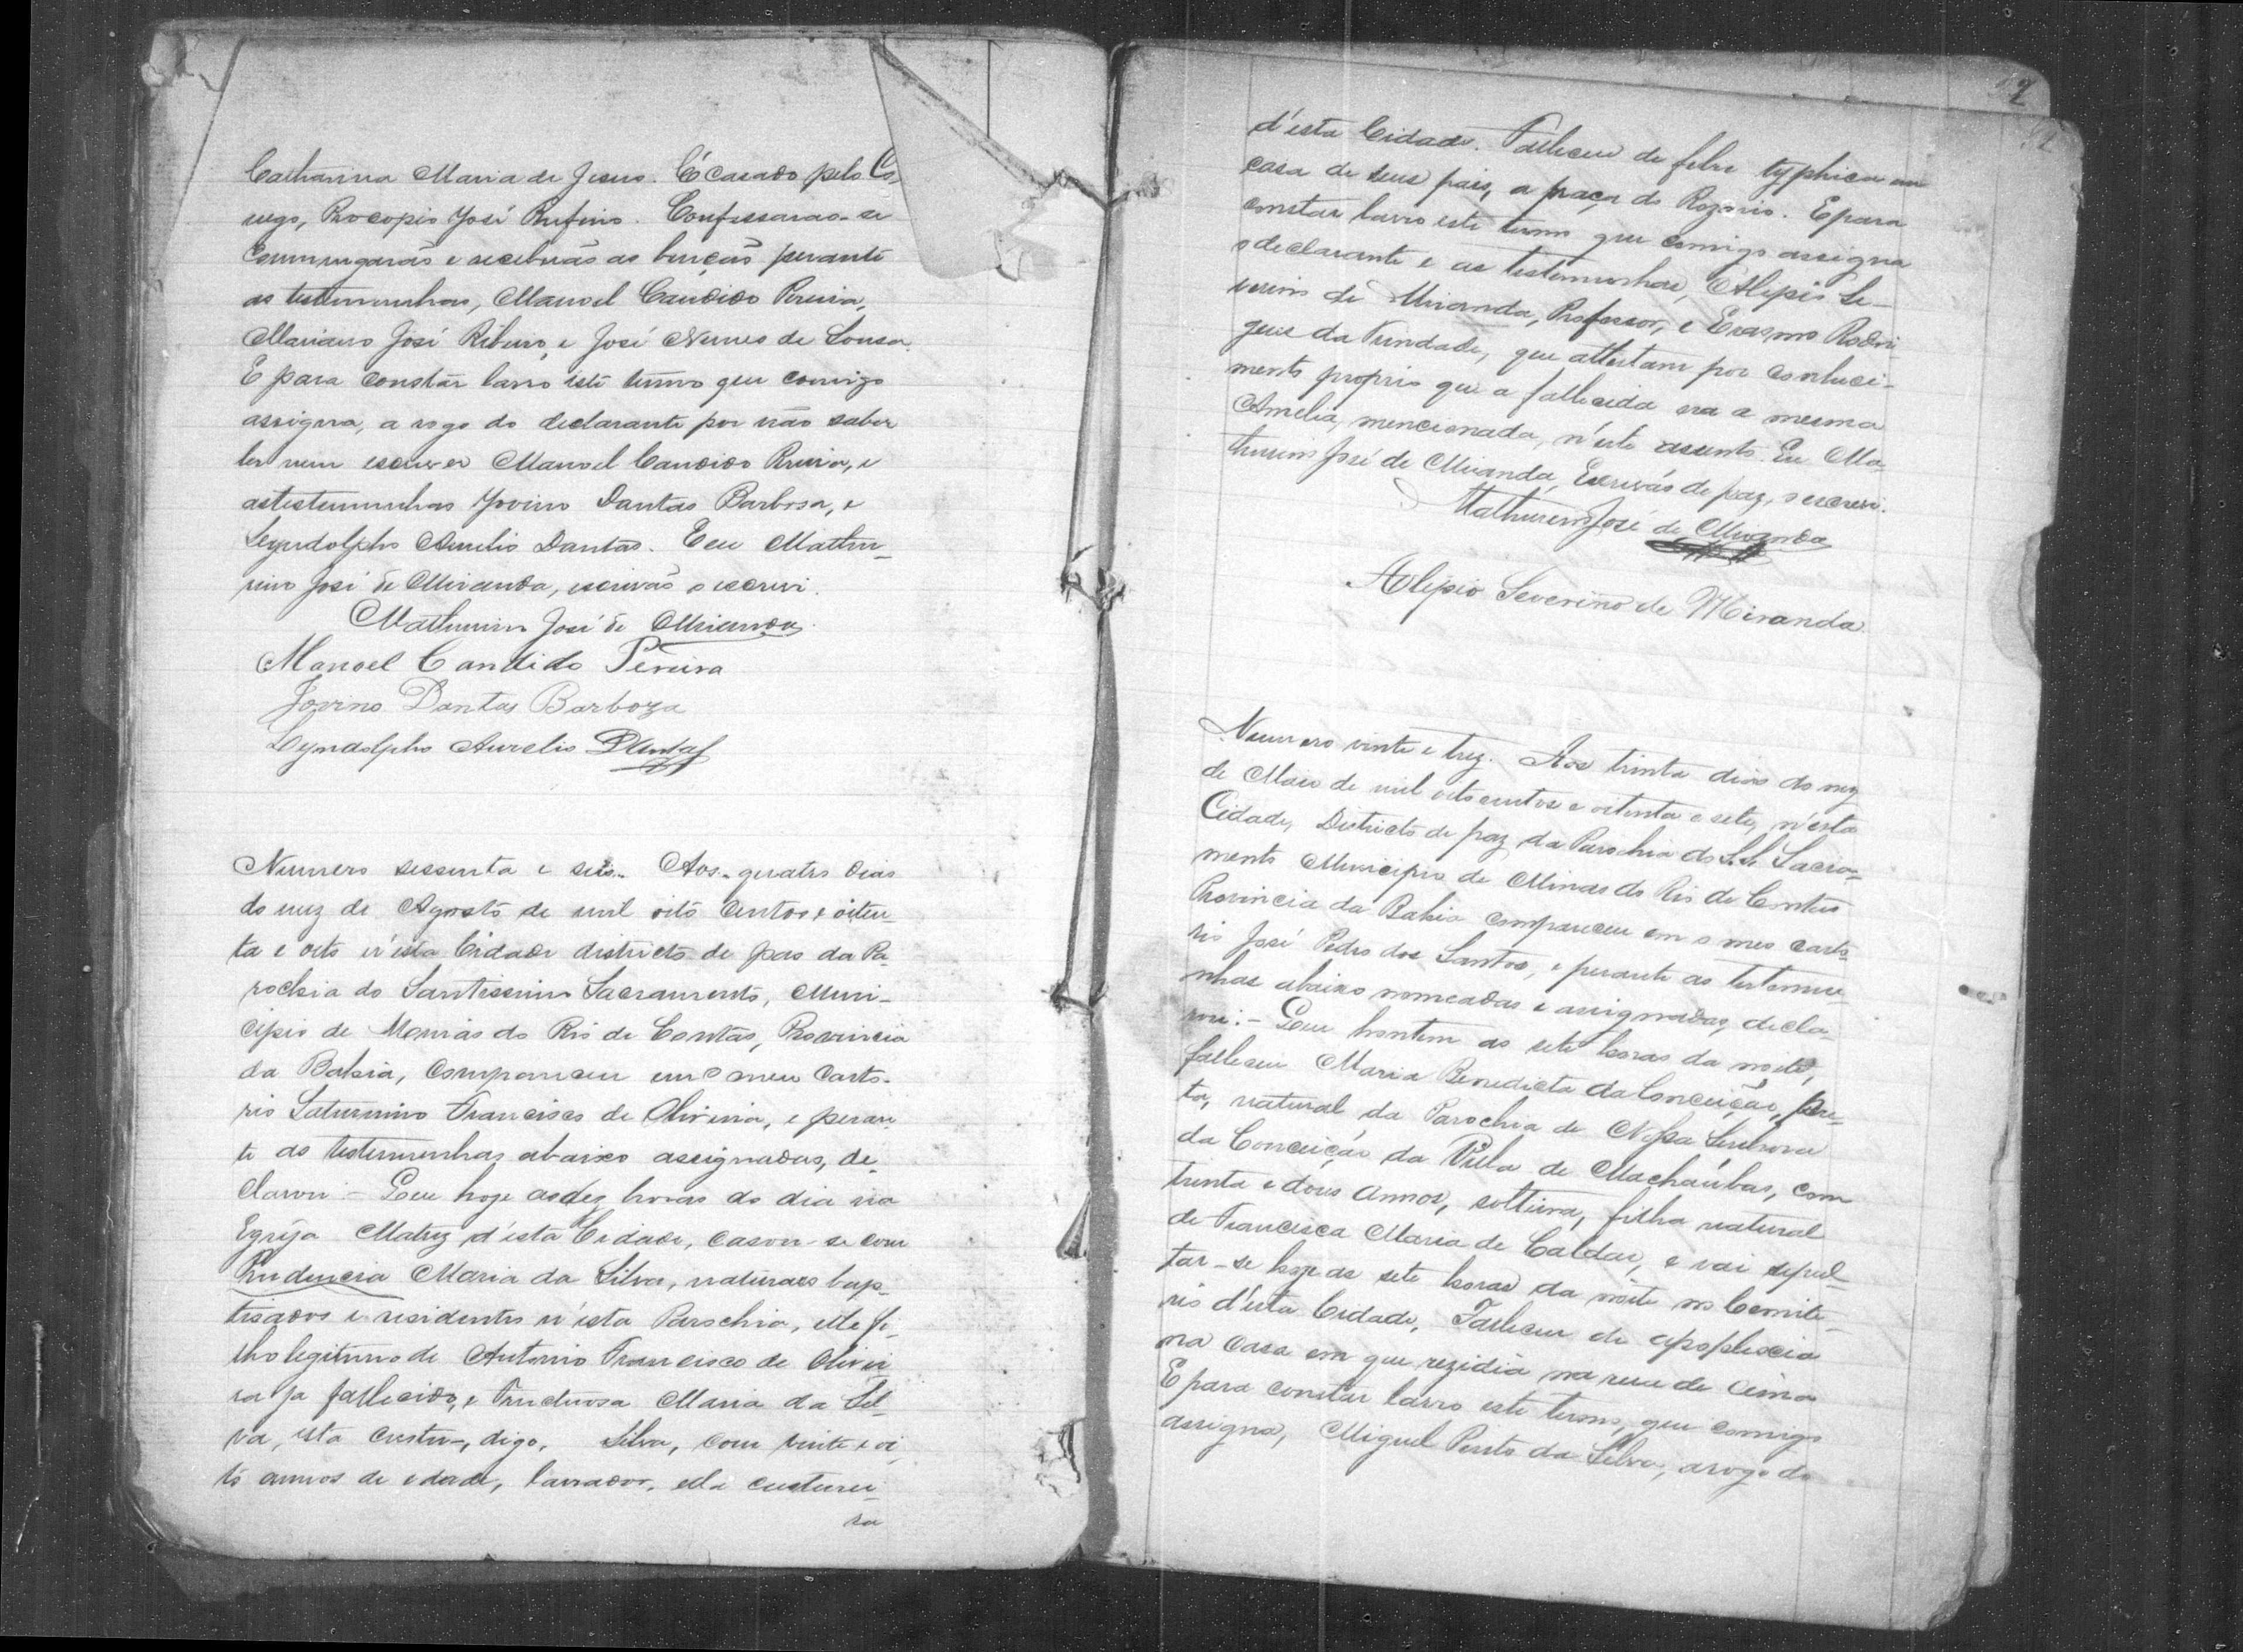 Catharina Maria de Jesus. É casado pelo Co-
nego, Procopio José Rufino. Confessarão-se
Commungarão e receberão as bençãos perante
as testemunhas, Manoel Candido Pereira,
Mariano José Ribeiro, e José Nunes de Sousa.
E para constar lavro este termo que comigo
assigna, a rogo do declarante por não saber
ler nem escrever Manoel Candido Pereira, e
as testemunhas Jovino Dantas Barbosa, e
Leyndolpho Aurelio Dantas. E eu Mathu-
rino José de Miranda, escrivão o escrevi.
Mathurino José de Miranda
Manoel Candido Pereira
Jovino Dantas Barboza
Leyndolpho Aurelio Dantas
Numero sessenta e seis. Aos quatro dias
do mez de Agosto de mil oito centos e oiten-
ta e oito n'esta Cidade districto de pas da Pa-
rochia do Santissimo Sacramento, Muni-
cipio de Minas do Rio de Contas, Provincia
da Bahia, Compareceu em o meu Carto-
rio Saturnino Francisco de Oliveira, e peran-
te as testemunhas abaixo assignadas, de-
clarou - Que hoje as dez horas do dia na
Egreja Matriz d'esta Cidade, casou-se com
Prudencia Maria da Silva, naturaes bap-
tisados e residentes n'esta Parochia, elle fi-
lho legitimo de Antonio Francisco de Olivei-
ra ja fallecido, e Fructuosa Maria da Sil-
va, esta custu-, digo, Silva, com vinte e oi-
to annos de edade, lavrador, ella costurei-
ra
2
d'esta Cidade. Falleceu de febre typhica em
casa de seus pais, a praça do Rozario. E para
constar lavro este termo que comigo assigna
o declarante e as testemunhas, Alipio Se-
verino de Miranda, Professor, e Erasmo Rodri-
gues da Trindade, que attestam por conheci-
mento proprio que a fallecida era a mesma
Amelia, mencionada, n'este assento. Eu Ma-
thurino José de Miranda, Escrivão de paz, o escrevi.
Mathurino José de Miranda
Alipio Severino de Miranda
Numero vinte e trez. Aos trinta dias do mez
de Maio de mil oito centos e oitenta e sete, n'esta
Cidade, Districto de paz da Parochia do S.S. Sacra-
mento Municipio de Minas do Rio de Contas
Provincia da Bahia compareceu em o meu carto-
rio José Pedro dos Santos, e perante as testemu-
nhas abaixo nomeadas e assignadas, decla-
rou: - Que hontem as sete horas da noite,
falleceu Maria Benedicta da Conceição, pre-
ta, natural da Parochia de Nossa Senhora
da Conceição da Villa de Machaúbas, com
trinta e dous annos, solteira, filha natural
de Francisca Maria de Caldas, e vai sepul-
tar-se hoje as sete horas da noite no Cemite-
rio d'esta Cidade. Falleceu de apoplexia
na casa em que rezidia na rua de cima
E para constar lavro este termo, que comigo
assigna, Miguel Pinto da Silva, a rogo do